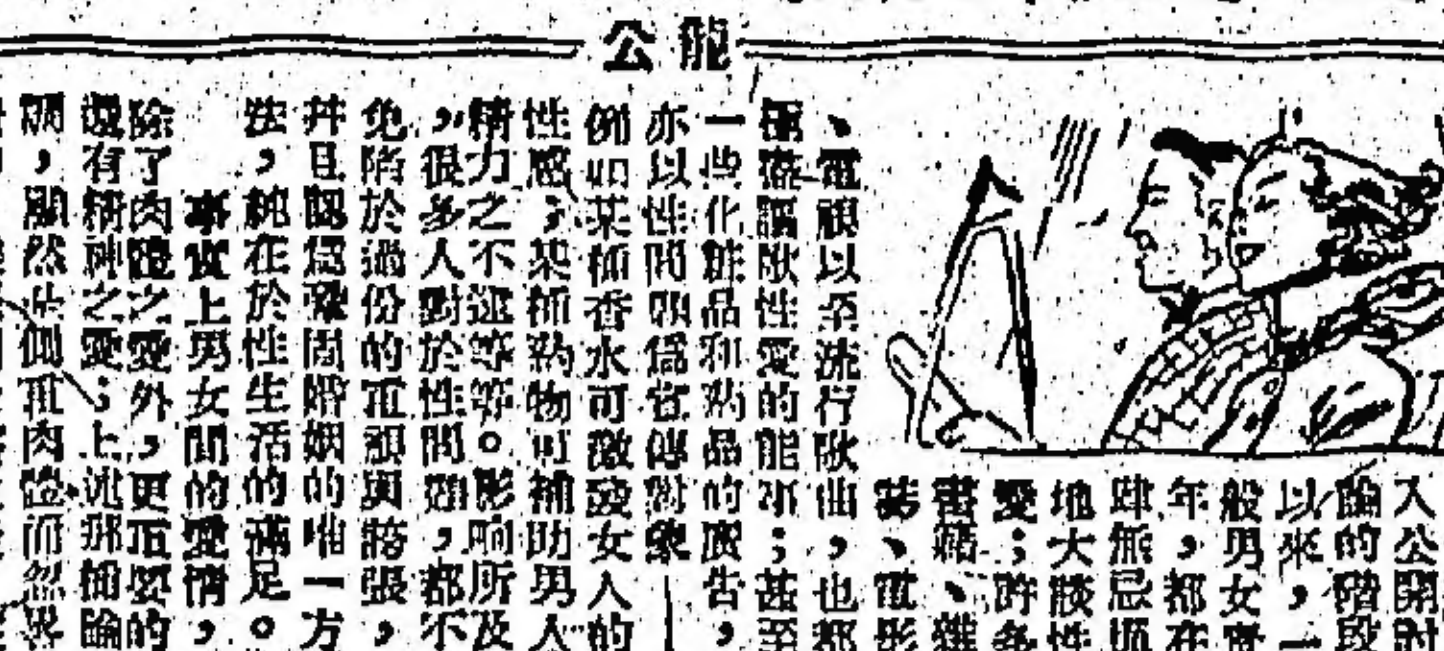 公龍
入公開討
論的階段
以來，一
般男女實
年，都在
肆無忌憚
地大談性
愛；許多
書籍、雜
誌、電影
、電視以至流行歌曲，也都
極盡謳歌性愛的能事；甚至
一些化粧品和藥品的廣告，
亦以性問題爲宣傳對象
例如某種香水可激發女人的
性感；某種藥物可補助男人
精力之不逮等等。影响所及
，很多人對於性問題，都不
免陷於過份的重視與誇張，
并且認爲鞏固婚姻的唯一方
法，純在於性生活的滿足。
事實上男女間的愛情，
除了肉體之愛外，更重要的
還有精神之愛；上述那種論
調，顯然是側重肉體而忽畧